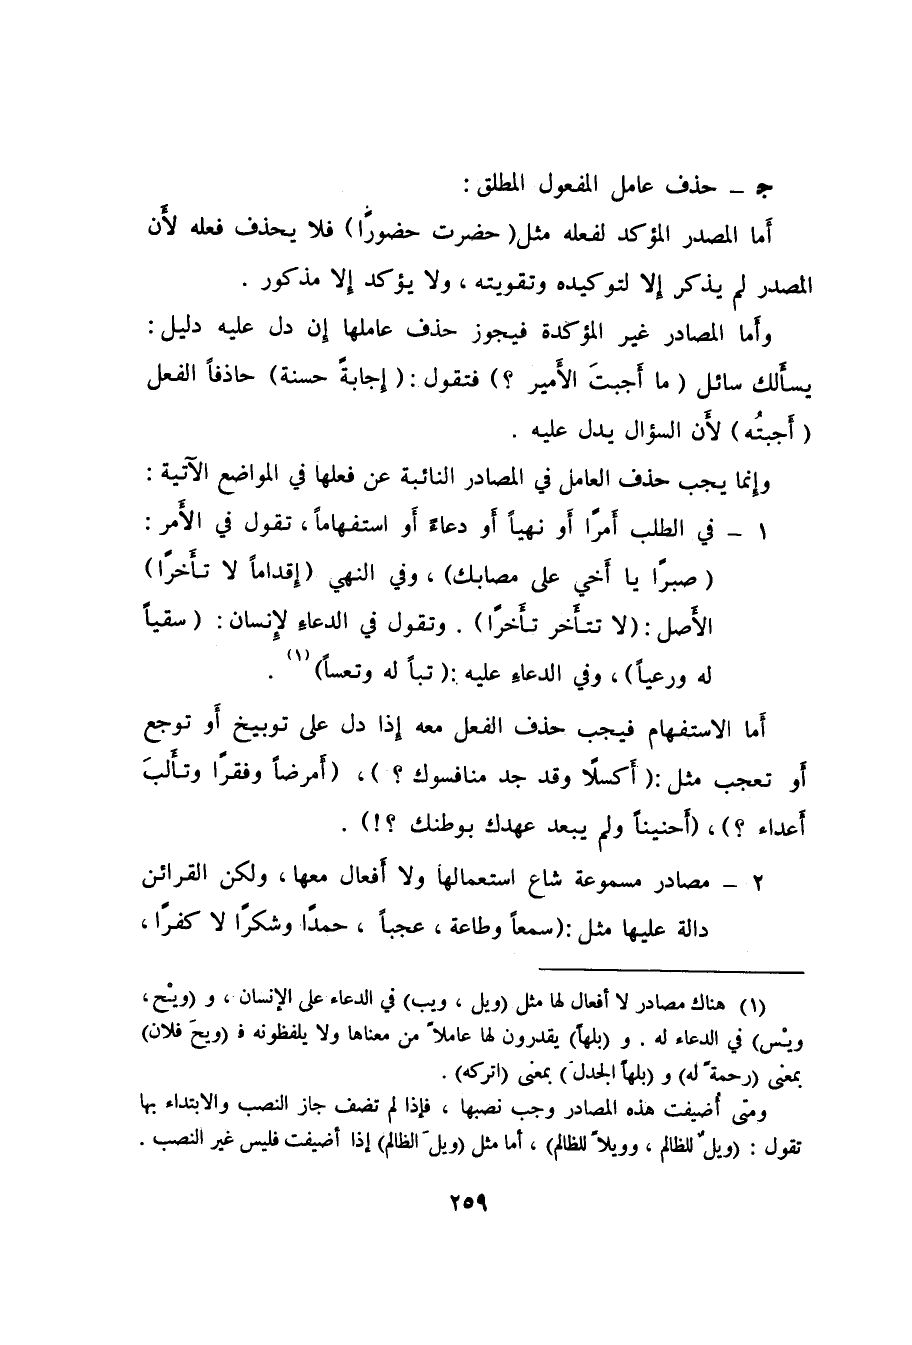 جـ ــ حذف عامل المفعول المطلق :
أما المصدر المؤكد لفعله مثل( حضرت حضورًا ) فلا يحذف فعله لأَن
المصدر لم يذكر إلا لتوكيده وتقويته ، ولا يؤكد إلا مذكور .
وأَما المصادر غير المؤكدة فيجوز حذف عاملها إن دل عليه دليل :
يسأَلك سائل ( ما أَجبتَ الأَمير ؟) فتقول :( إجابةً حسنة) حاذفاً الفعل
( أَجبتُه ) لأَن السؤال يدل عليه .
وإنما يجب حذف العامل في المصادر النائبة عن فعلها في المواضع الآتية :
١ ــ في الطلب أَمرًا أَو نهياً أَو دعاءً أَو استفهاماً ، تقول في الأَمر :
( صبرًا يا أَخي على مصابك) ، وفي النهي (إقداماً لا تأَخرًا )
الأَصل :(لا تتأَخر تأَخرًا ) . وتقول في الدعاءِ لإنسان : ( سقياً
له ورعياً ) ، وفي الدعاءِ عليه :( تباً له وتعساً )(١) .
أَما الاستفهام فيجب حذف الفعل معه إذا دل على توبيخ أَو توجع
أَو تعجب مثل :( أَكسلًا وقد جد منافسوك ؟ ) ، (أَمرضاً وفقرًا وتأَلبَ
أَعداء ؟) ، (أَحنيناً ولم يبعد عهدك بوطنك ؟!) .
٢ ــ مصادر مسموعة شاع استعمالها ولا أَفعال معها ، ولكن القرائن
دالة عليها مثل :(سمعاً وطاعة ، عجباً ، حمدًا وشكرًا لا كفرًا ،
(١) هناك مصادر لا أفعال لها مثل (ويل ، ويب) في الدعاء على الإنسان ، و (ويْح ،
ويْس) في الدعاء له . و (بلهاً) يقدرون لها عاملاً من معناها ولا يلفظونه فـ (ويحَ فلان)
بمعنى (رحمةً له) و (بلهاً الجدلَ) بمعنى (اتركه) .
ومتى أُضيفت هذه المصادر وجب نصبها ، فإذا لم تضف جاز النصب والابتداء بها
تقول : (ويلٌ للظالم ، وويلاً للظالم) ، أما مثل (ويلَ الظالم) إذا أضيفت فليس غير النصب .
٢٥٩